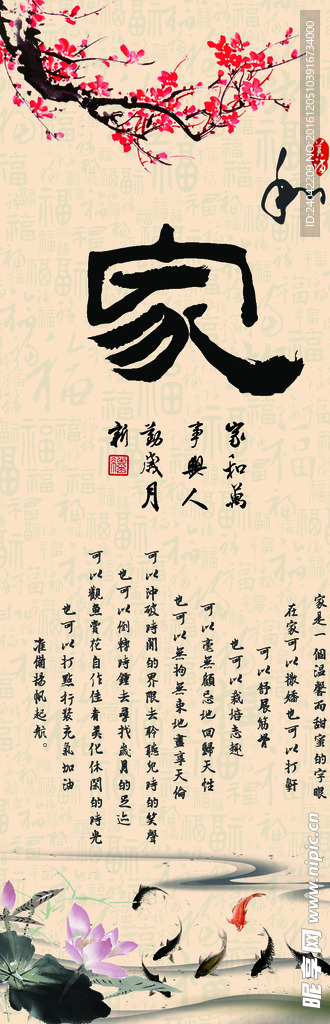 和
家
家和萬
事興人
勤歲月
新
家是一個溫馨而甜蜜的字眼
在家可以撒嬌也可以打鼾
可以舒展筋骨
也可以栽培志趣
可以毫無顧忌地回歸天性
也可以無拘無束地盡享天倫
可以沖破時間的界限去聆聽兒時的笑聲
也可以倒轉時鐘去尋找歲月的足迹
可以觀魚賞花自作佳肴美化休閑的時光
也可以打點行裝充氣加油
准備揚帆起航。
昵享网 www.nipic.cn
ID:24042209 NO:20161205103916734000